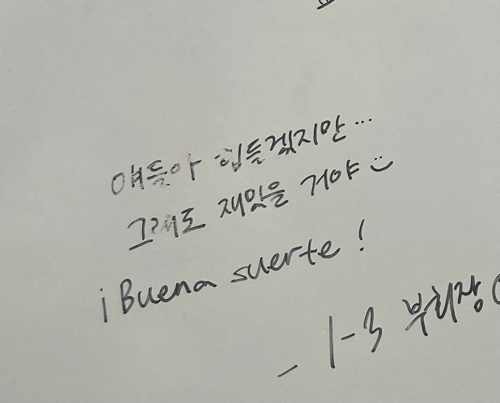 얘들아 힘들겠지만...
그래도 재밌을 거야 :)
¡Buena suerte!
- 1-3 부회장